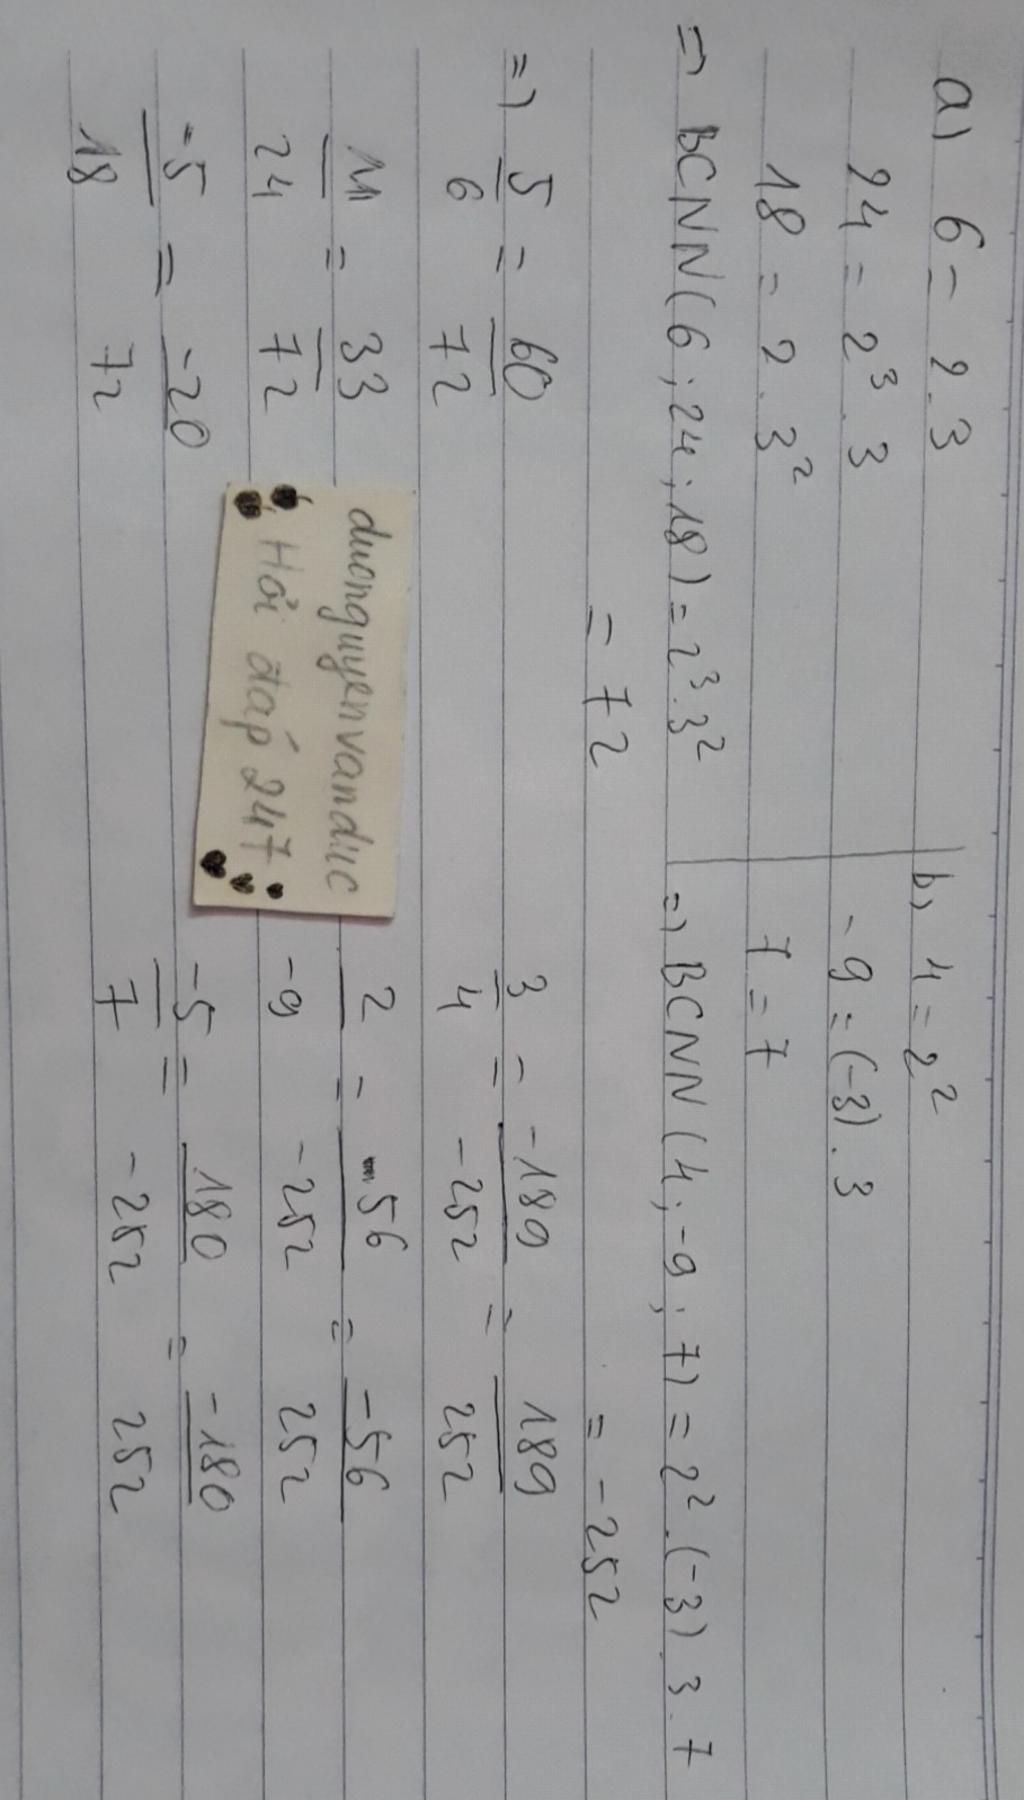 a) 6 = 2.3
24 = 2³.3
18 = 2.3²
=> BCNN(6;24;18) = 2³.3²
= 72
=> 5/6 = 60/72
11/24 = 33/72
-5/18 = -20/72
duonguyenvanduc
Hỏi đáp 247
b) 4 = 2²
-9 = (-3).3
7 = 7
=> BCNN(4;-9;7) = 2².(-3).3.7
= -252
3/4 = -189/-252 = 189/252
2/-9 = 56/-252 = -56/252
-5/7 = 180/-252 = -180/252